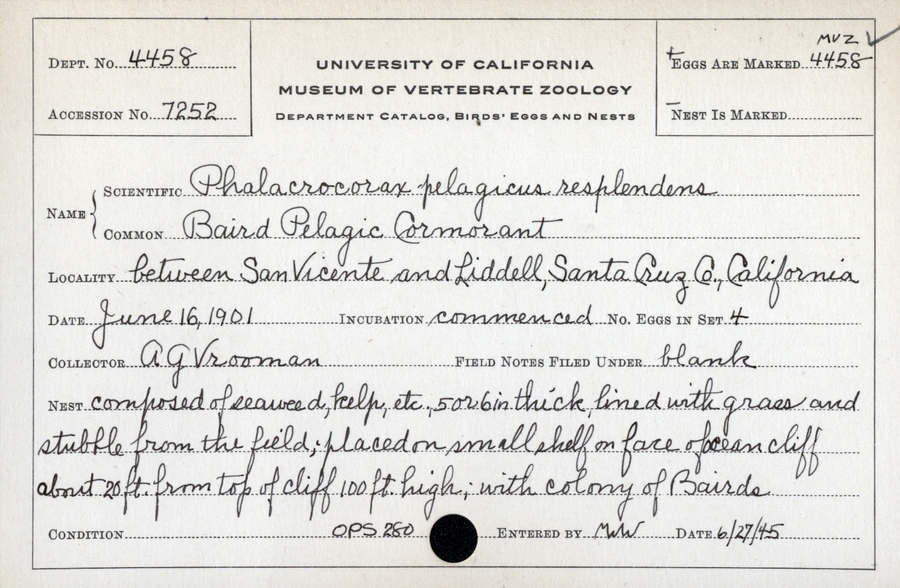 DEPT. No. 4458
ACCESSION No. 7252
UNIVERSITY OF CALIFORNIA
MUSEUM OF VERTEBRATE ZOOLOGY
DEPARTMENT CATALOG, BIRDS' EGGS AND NESTS
MVZ
+ EGGS ARE MARKED 4458
- NEST IS MARKED
NAME
SCIENTIFIC Phalacrocorax pelagicus resplendens
COMMON Baird Pelagic Cormorant
LOCALITY between San Vicente and Liddell, Santa Cruz Co., California
DATE June 16, 1901 INCUBATION commenced No. EGGS IN SET 4
COLLECTOR A G Vrooman FIELD NOTES FILED UNDER blank
NEST composed of seaweed, kelp, etc., 5 or 6 in thick, lined with grass and
stubble from the field; placed on small shelf on face of ocean cliff
about 20 ft. from top of cliff 100 ft. high; with colony of Bairds
CONDITION OPS 280 ENTERED BY MWW DATE 6/27/45